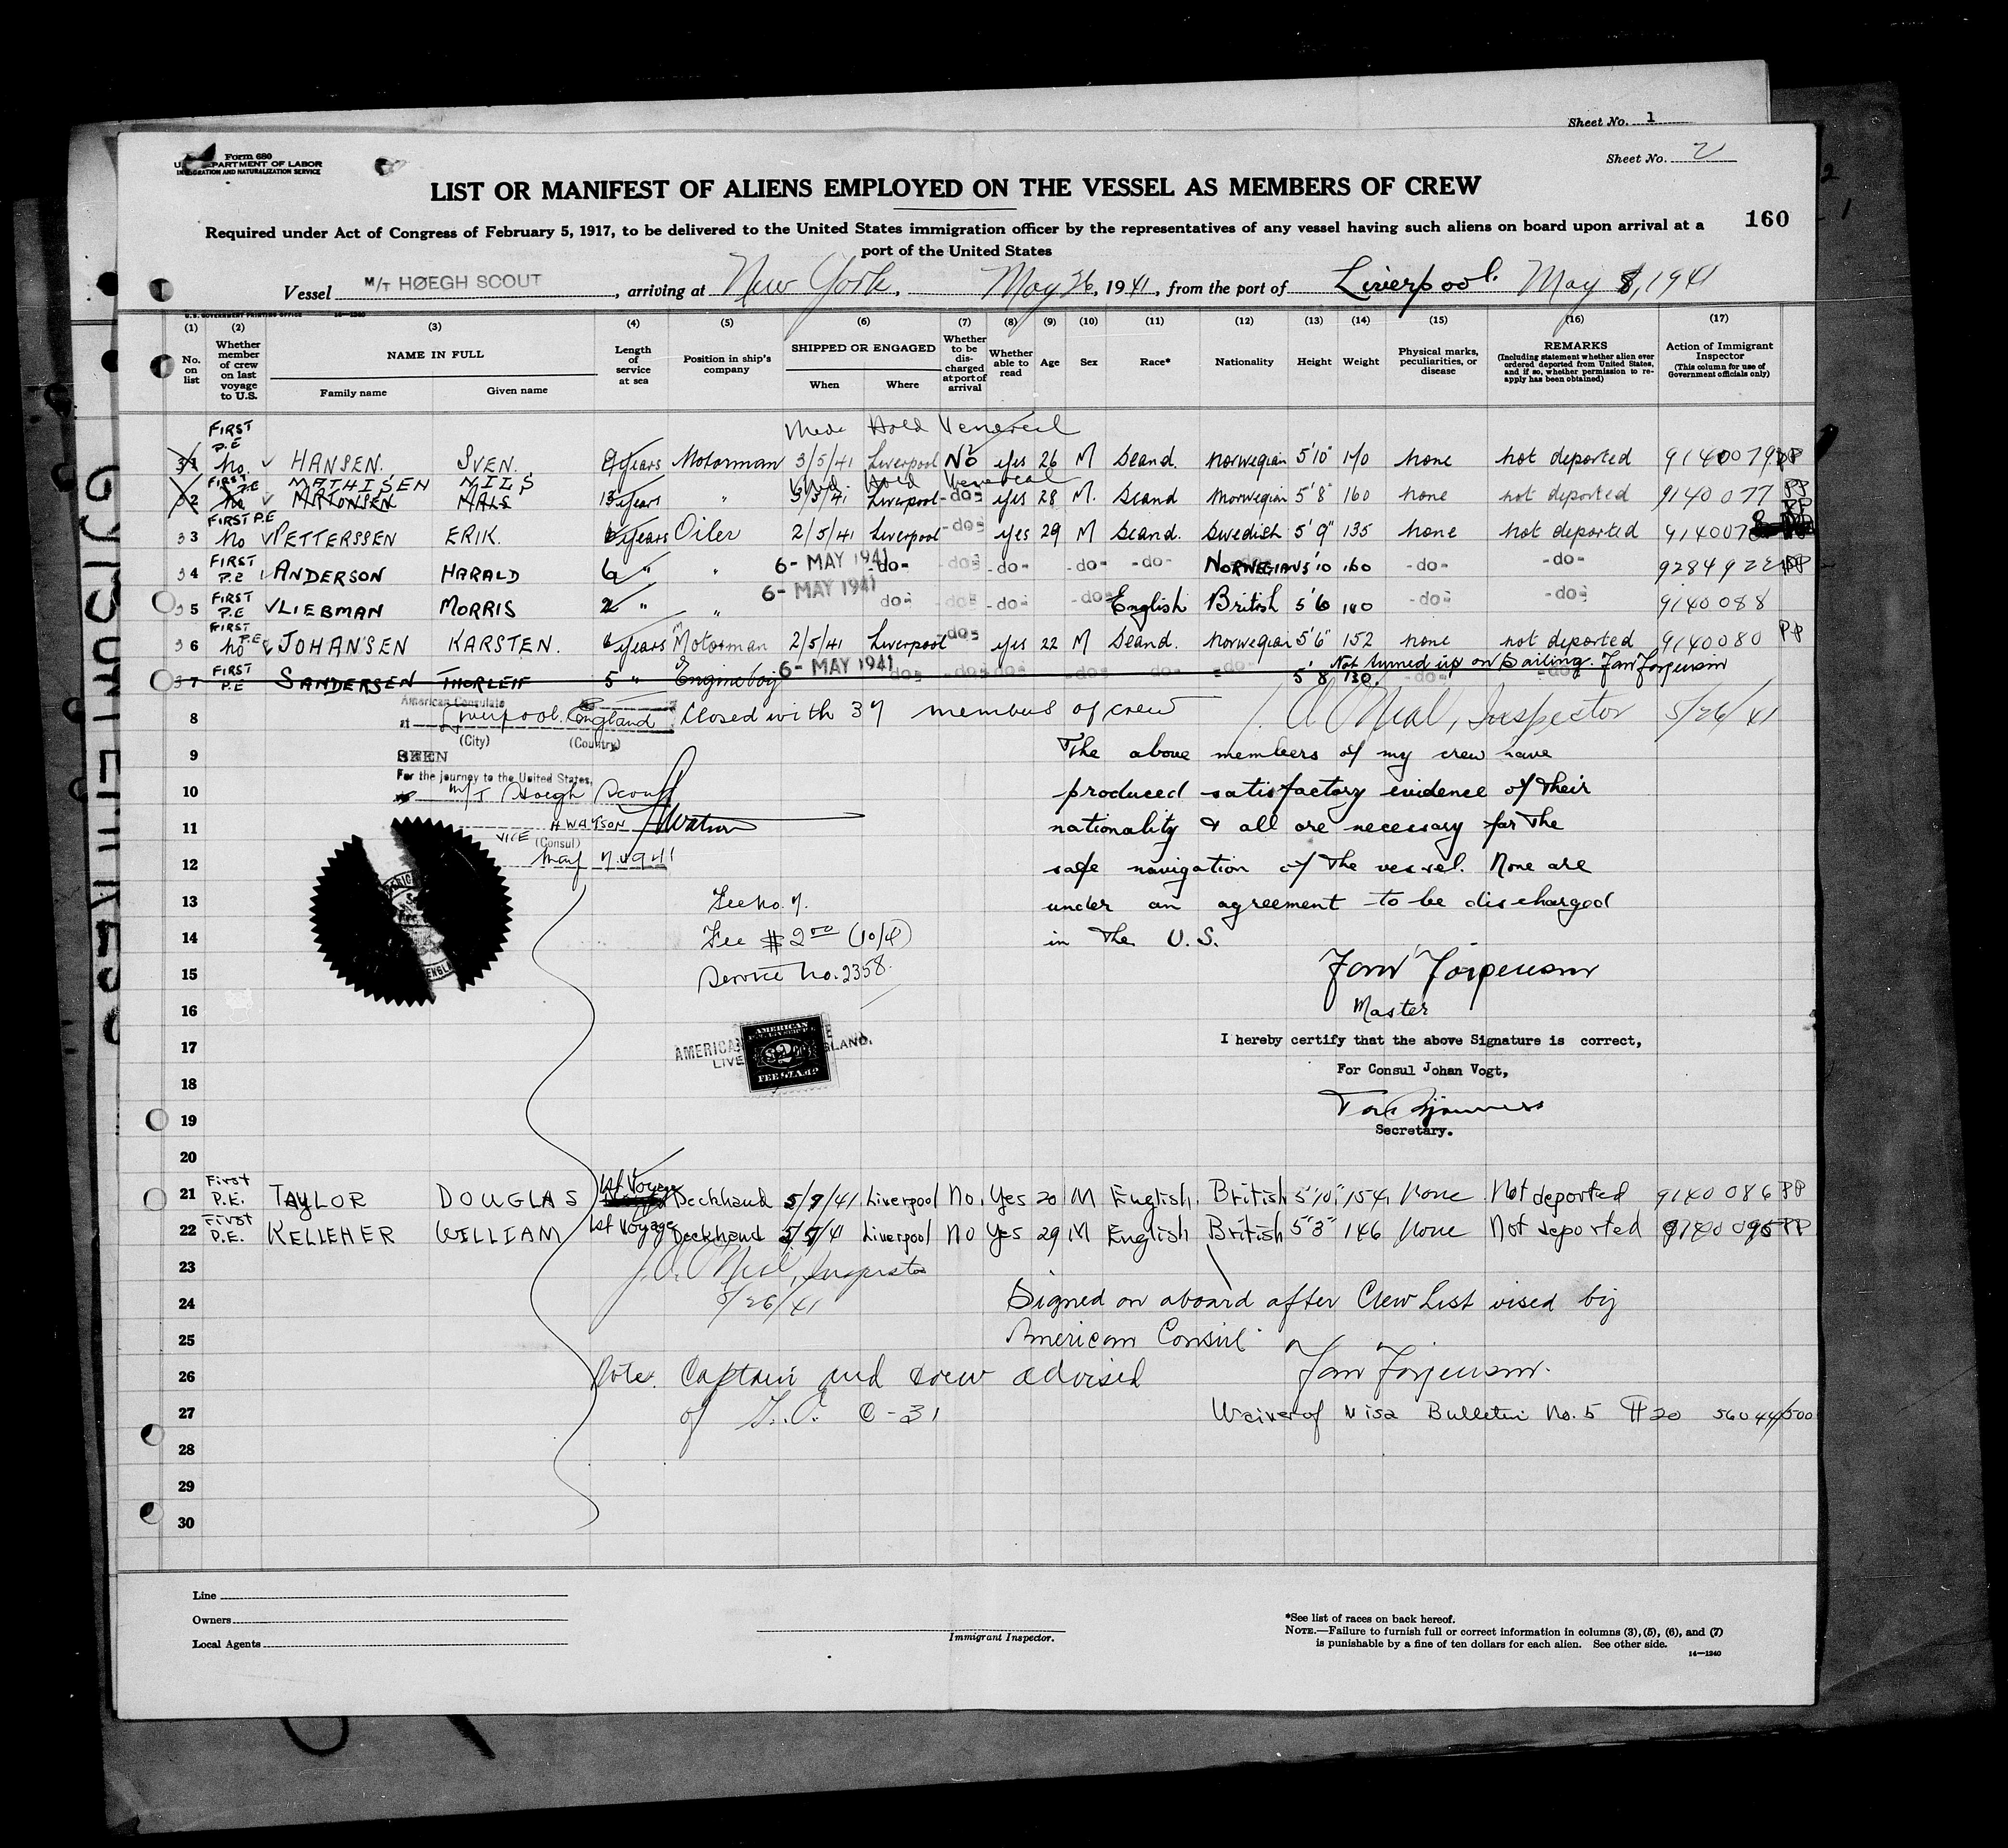 Sheet No. 1
Form 680
DEPARTMENT OF LABOR
IMMIGRATION AND NATURALIZATION SERVICE
Sheet No. 2
LIST OR MANIFEST OF ALIENS EMPLOYED ON THE VESSEL AS MEMBERS OF CREW
160
Required under Act of Congress of February 5, 1917, to be delivered to the United States immigration officer by the representatives of any vessel having such aliens on board upon arrival at a
port of the United States
Vessel M/T HØEGH SCOUT, arriving at New York, May 26, 1941, from the port of Liverpool. May 8, 1941
U.S. GOVERNMENT PRINTING OFFICE 14-1240
(1) (2) (3) (4) (5) (6) (7) (8) (9) (10) (11) (12) (13) (14) (15) (16) (17)
No. on list
Whether member of crew on last voyage to U.S.
NAME IN FULL
Family name
Given name
Length of service at sea
Position in ship's company
SHIPPED OR ENGAGED
When
Where
Whether to be discharged at port of arrival
Whether able to read
Age
Sex
Race*
Nationality
Height
Weight
Physical marks, peculiarities, or disease
REMARKS
(Including statement whether alien ever ordered deported from United States, and if so, whether permission to reapply has been obtained)
Action of Immigrant Inspector
(This column for use of Government officials only)
FIRST Hold Venereal
P.E
31 No. HANSEN. SVEN. years Motorman 3/5/41 Liverpool No yes 26 M Scand. Norwegian 5'10" 170 none not deported 9140079 PP
FIRST P.E MATHISEN NILS Hold Venereal
32 No years " 3/5/41 Liverpool -do- yes 28 M. Scand Norwegian 5'8" 160 none not deported 9140077 PP
FIRST P.E
33 No PETTERSSEN ERIK. years Oiler 2/5/41 Liverpool -do- yes 29 M Scand. Swedish 5'9" 135 none not deported 9140078
34 FIRST P.E ANDERSON HARALD 6 " " 6- MAY 1941 -do- -do- -do- -do- -do- NORWEGIAN 5'10 160 -do- -do- 9284922 PP
35 FIRST P.E LIEBMAN MORRIS 2 " " 6- MAY 1941 do- -do- -do- -do- English British 5'6 140 -do- -do- 9140088
FIRST P.E
36 No JOHANSEN KARSTEN. years Motorman 2/5/41 Liverpool -do- yes 22 M Scand. Norwegian 5'6" 152 none not deported 9140080 PP
Not turned up on Sailing. Jan Jørgensen
37 FIRST P.E SANDERSEN THORLEIF 5 " Engineboy 6- MAY 1941 do- -do- do- -do- -do- -do- 5'8 130 -do- -do-
American Consulate
8 at Liverpool England Closed with 37 members of crew O'Neal, Inspector 5/26/41
(City) (Country)
9 SEEN The above members of my crew have
For the journey to the United States,
10 M/T Hoegh Scout produced satisfactory evidence of their
11 H WATSON HWatson nationality & all are necessary for the
VICE (Consul)
12 May 7. 1941 safe navigation of the vessel. None are
13 Fee No. 7. under an agreement to be discharged
14 Fee $2.00 (10/4) in the U.S.
15 Service No. 2358. Jan Jørgensen
16 Master
17 I hereby certify that the above Signature is correct,
AMERICAN
FEE STAMP
18 For Consul Johan Vogt,
19
Secretary.
20
1st Voyage
21 First P.E. TAYLOR DOUGLAS Deckhand 5/7/41 Liverpool No. Yes 20 M English. British 5'10" 154 None Not deported 9140086 PP
22 First P.E. KELLEHER WILLIAM 1st Voyage Deckhand 5/7/41 Liverpool No Yes 29 M English British 5'3" 146 None Not deported 9140095 PP
23 J. O'Neal, Inspector
24 5/26/41 Signed on aboard after Crew List vised by
25 American Consul
26 Note: Captain and crew advised Jan Jørgensen.
27 of C-31 Waiver of Visa Bulletin No. 5 #20 56044/500
28
29
30
Line
Owners
Local Agents
Immigrant Inspector.
*See list of races on back hereof.
NOTE.—Failure to furnish full or correct information in columns (3), (5), (6), and (7)
is punishable by a fine of ten dollars for each alien. See other side.
14—1240